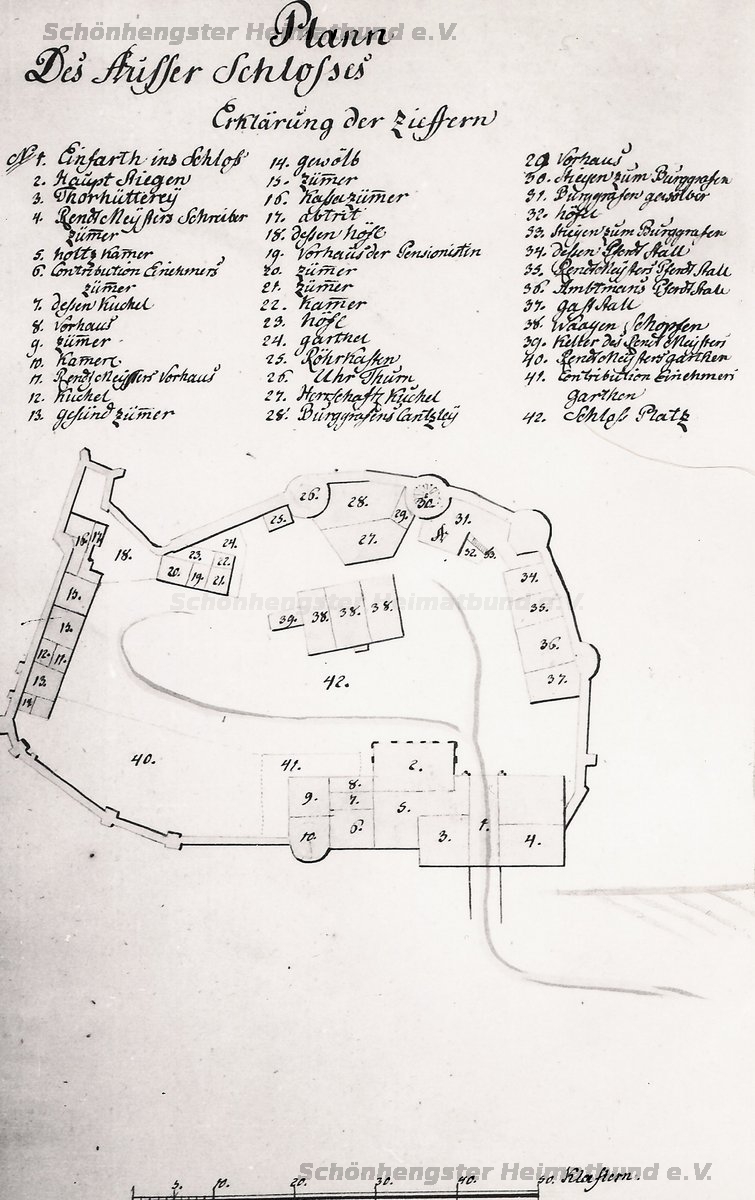 Schönhengster Heimatbund e.V.
Plann
Des Ausser Schlosses
Erklärung der Zieffern
No 1. Einfarth ins Schloß
2. Haupt Stiegen
3. Thorhütterey
4. Rendt Meisters Schreiber
Zümer
5. holtz Kamer
6. Contribution Einehmers
Zümer
7. dessen Kuchel
8. Vorhaus
9. Zümer
10. Kamerl
11. Rendt Meisters Vorhaus
12. Kuchel
13. gesünd Zümer
14. gewölb
15. Zümer
16. Zümer
17. abtrit
18. dessen höfl
19. Vorhaus der Pensionistin
20. Zümer
21. Zümer
22. Kamer
23. höfl
24. gärthel
25. Röhrkasten
26. Uhr Thurn
27. Herschafts Kuchel
28. Burggrafens Cantzley
29. Vorhaus
30. Stiegen zum Burggrafen
31. Burggrafen gewölber
32. höfel
33. Stiegen zum Burggrafen
34. dessen Pferdt Stall
35. Rendt Meisters Pferdt Stall
36. Ambtmans Pferdt Stall
37. gast Stall
38. Waagen Schopfen
39. Keller des Rendt Meisters
40. Rendt Meisters garthen
41. Contribution Einehmers
garthen
42. Schloß Platz
26.
28.
29.
30.
25.
31.
A
27.
32.
33.
16.
17.
18.
24.
23.
22.
20.
19.
21.
34.
15.
Schönhengster Heimatbund e.V.
35.
38.
38.
38.
39.
13.
36.
12.
11.
13.
42.
37.
14.
40.
41.
2.
8.
9.
7.
5.
6.
10.
3.
1.
4.
Schönhengster Heimatbund e.V.
5. 10. 20. 30. 40. 50. Klaftern.